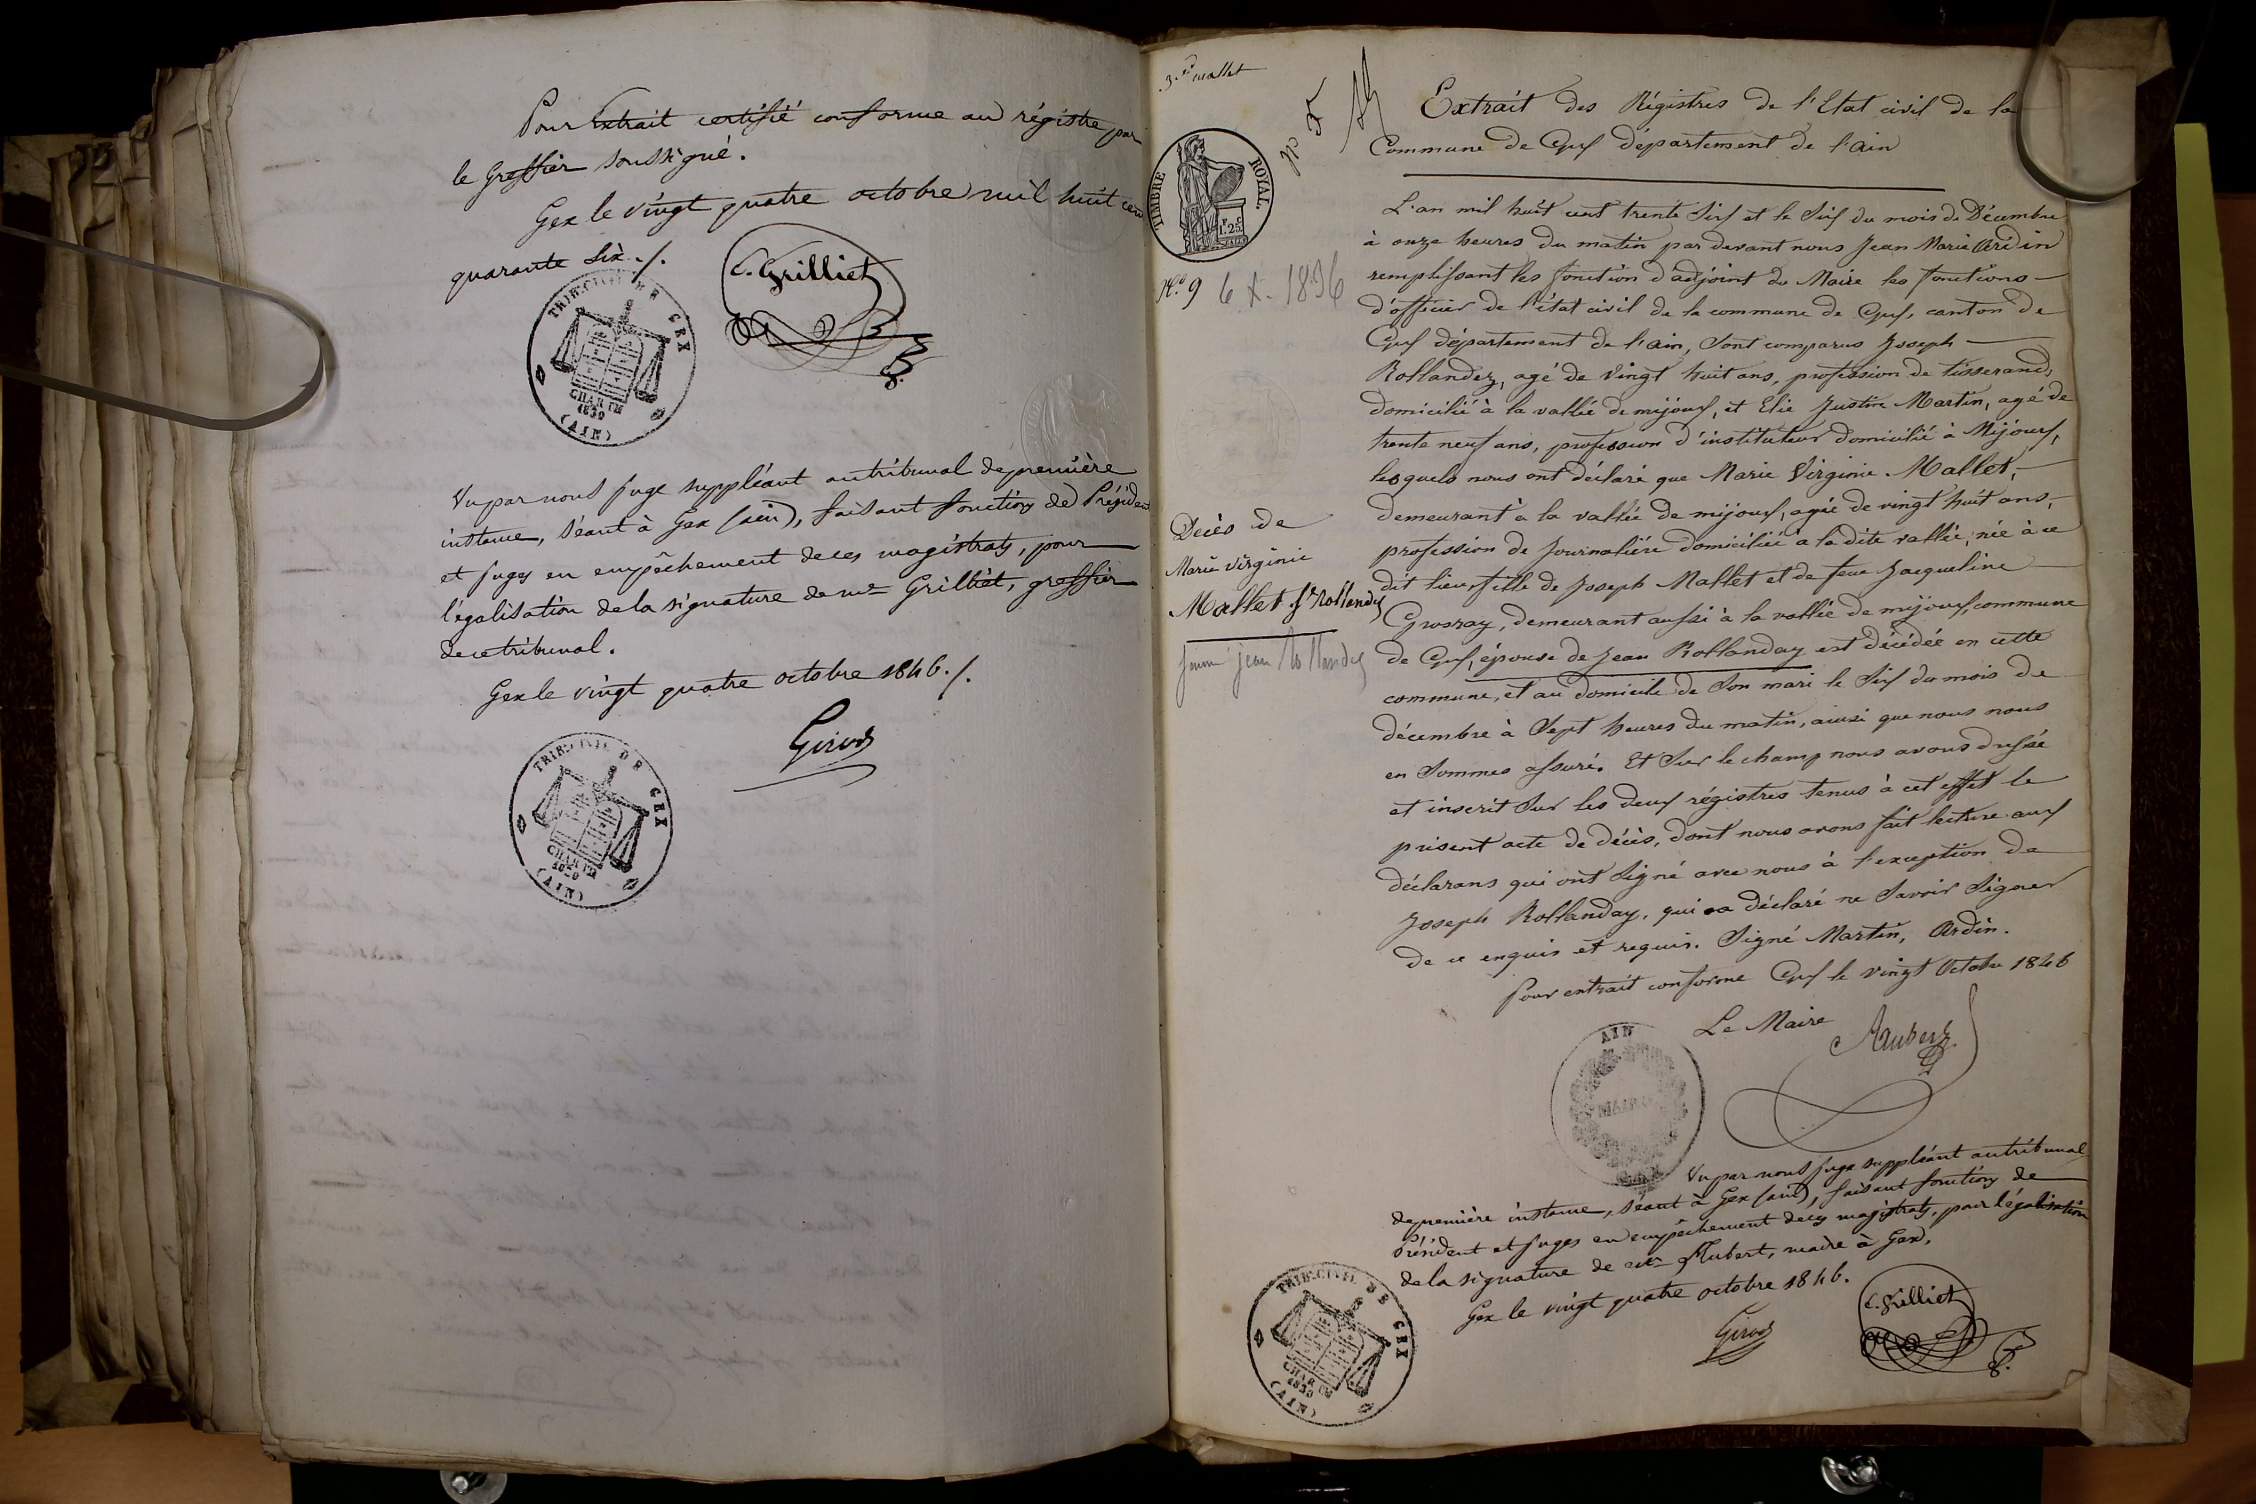 Pour Extrait certifié conforme au régistre par
le Greffier soussigné.
Gex le vingt quatre octobre mil huit cent
quarante six ./.
C. Grilliet
TRIB. CIVIL DE GEX
CHARTE
1830
(AIN)
Vu par nous juge suppléant au tribunal de première
instance, séant à Gex (ain), faisant fonction de Président
et juges en empêchement de ces magistrats, pour
légalisation de la signature de mr Grilliet, greffier
de ce tribunal.
Gex le vingt quatre octobre 1846 ./.
Girod
TRIB. CIVIL DE GEX
CHARTE
1830
(AIN)
mallet
TIMBRE ROYAL
No 9 6 X. 1836
Extrait des Régistres de l'Etat civil de la
Commune de Gex département de l'ain
L'an mil huit cent trente Six et le Six du mois de Décembre
à onze heures du matin par devant nous Jean Marie Ardin
remplissant les fonction d'adjoint du Maire les fonctions
d'officier de l'état civil de la commune de Gex, canton de
Gex département de l'ain, Sont comparus Joseph
Rollandez, agé de Vingt huit ans, profession de tisserand,
domicilié à la vallée de mijoux, et Elie Justin Martin, agé de
trente neuf ans, profession d'instituteur domicilié à Mijoux,
lesquels nous ont déclaré que Marie Virginie Mallet,
demeurant à la vallée de mijoux, agée de vingt huit ans,
profession de Journalière domiciliée à la dite vallée, née à ce
dit lieu, fille de Joseph Mallet et de feue Jacqueline
Grosray, demeurant aussi à la vallée de mijoux, commune
de Gex, épouse de Jean Rollanday est décédée en cette
commune, et au domicile de Son mari le Six du mois de
décembre à Sept heures du matin, ainsi que nous nous
en Sommes assuré. Et Sur le champ nous avons dressé
et inscrit Sur les deux régistres tenus à cet effet le
présent acte de décès, dont nous avons fait lecture aux
déclarans qui ont Signé avec nous à l'exception de
Joseph Rollanday, qui a déclaré ne Savoir Signer
de ce enquis et requis. Signé Martin, Ardin.
Pour extrait conforme Gex le vingt Octobre 1846
Le Maire
Aubert
Décès de
Marie Virginie
Mallet fe Rollandez
femme jean Rollandez
AIN
MAIRIE
Vu par nous juge suppléant au tribunal
de première instance, séant à Gex (ain), faisant fonction de
Président et juges en empêchement de ces magistrats, pour légalisation
de la signature de mr Aubert, maire à Gex.
Gex le vingt quatre octobre 1846.
Girod
C. Grilliet
TRIB. CIVIL DE GEX
CHARTE
1830
(AIN)